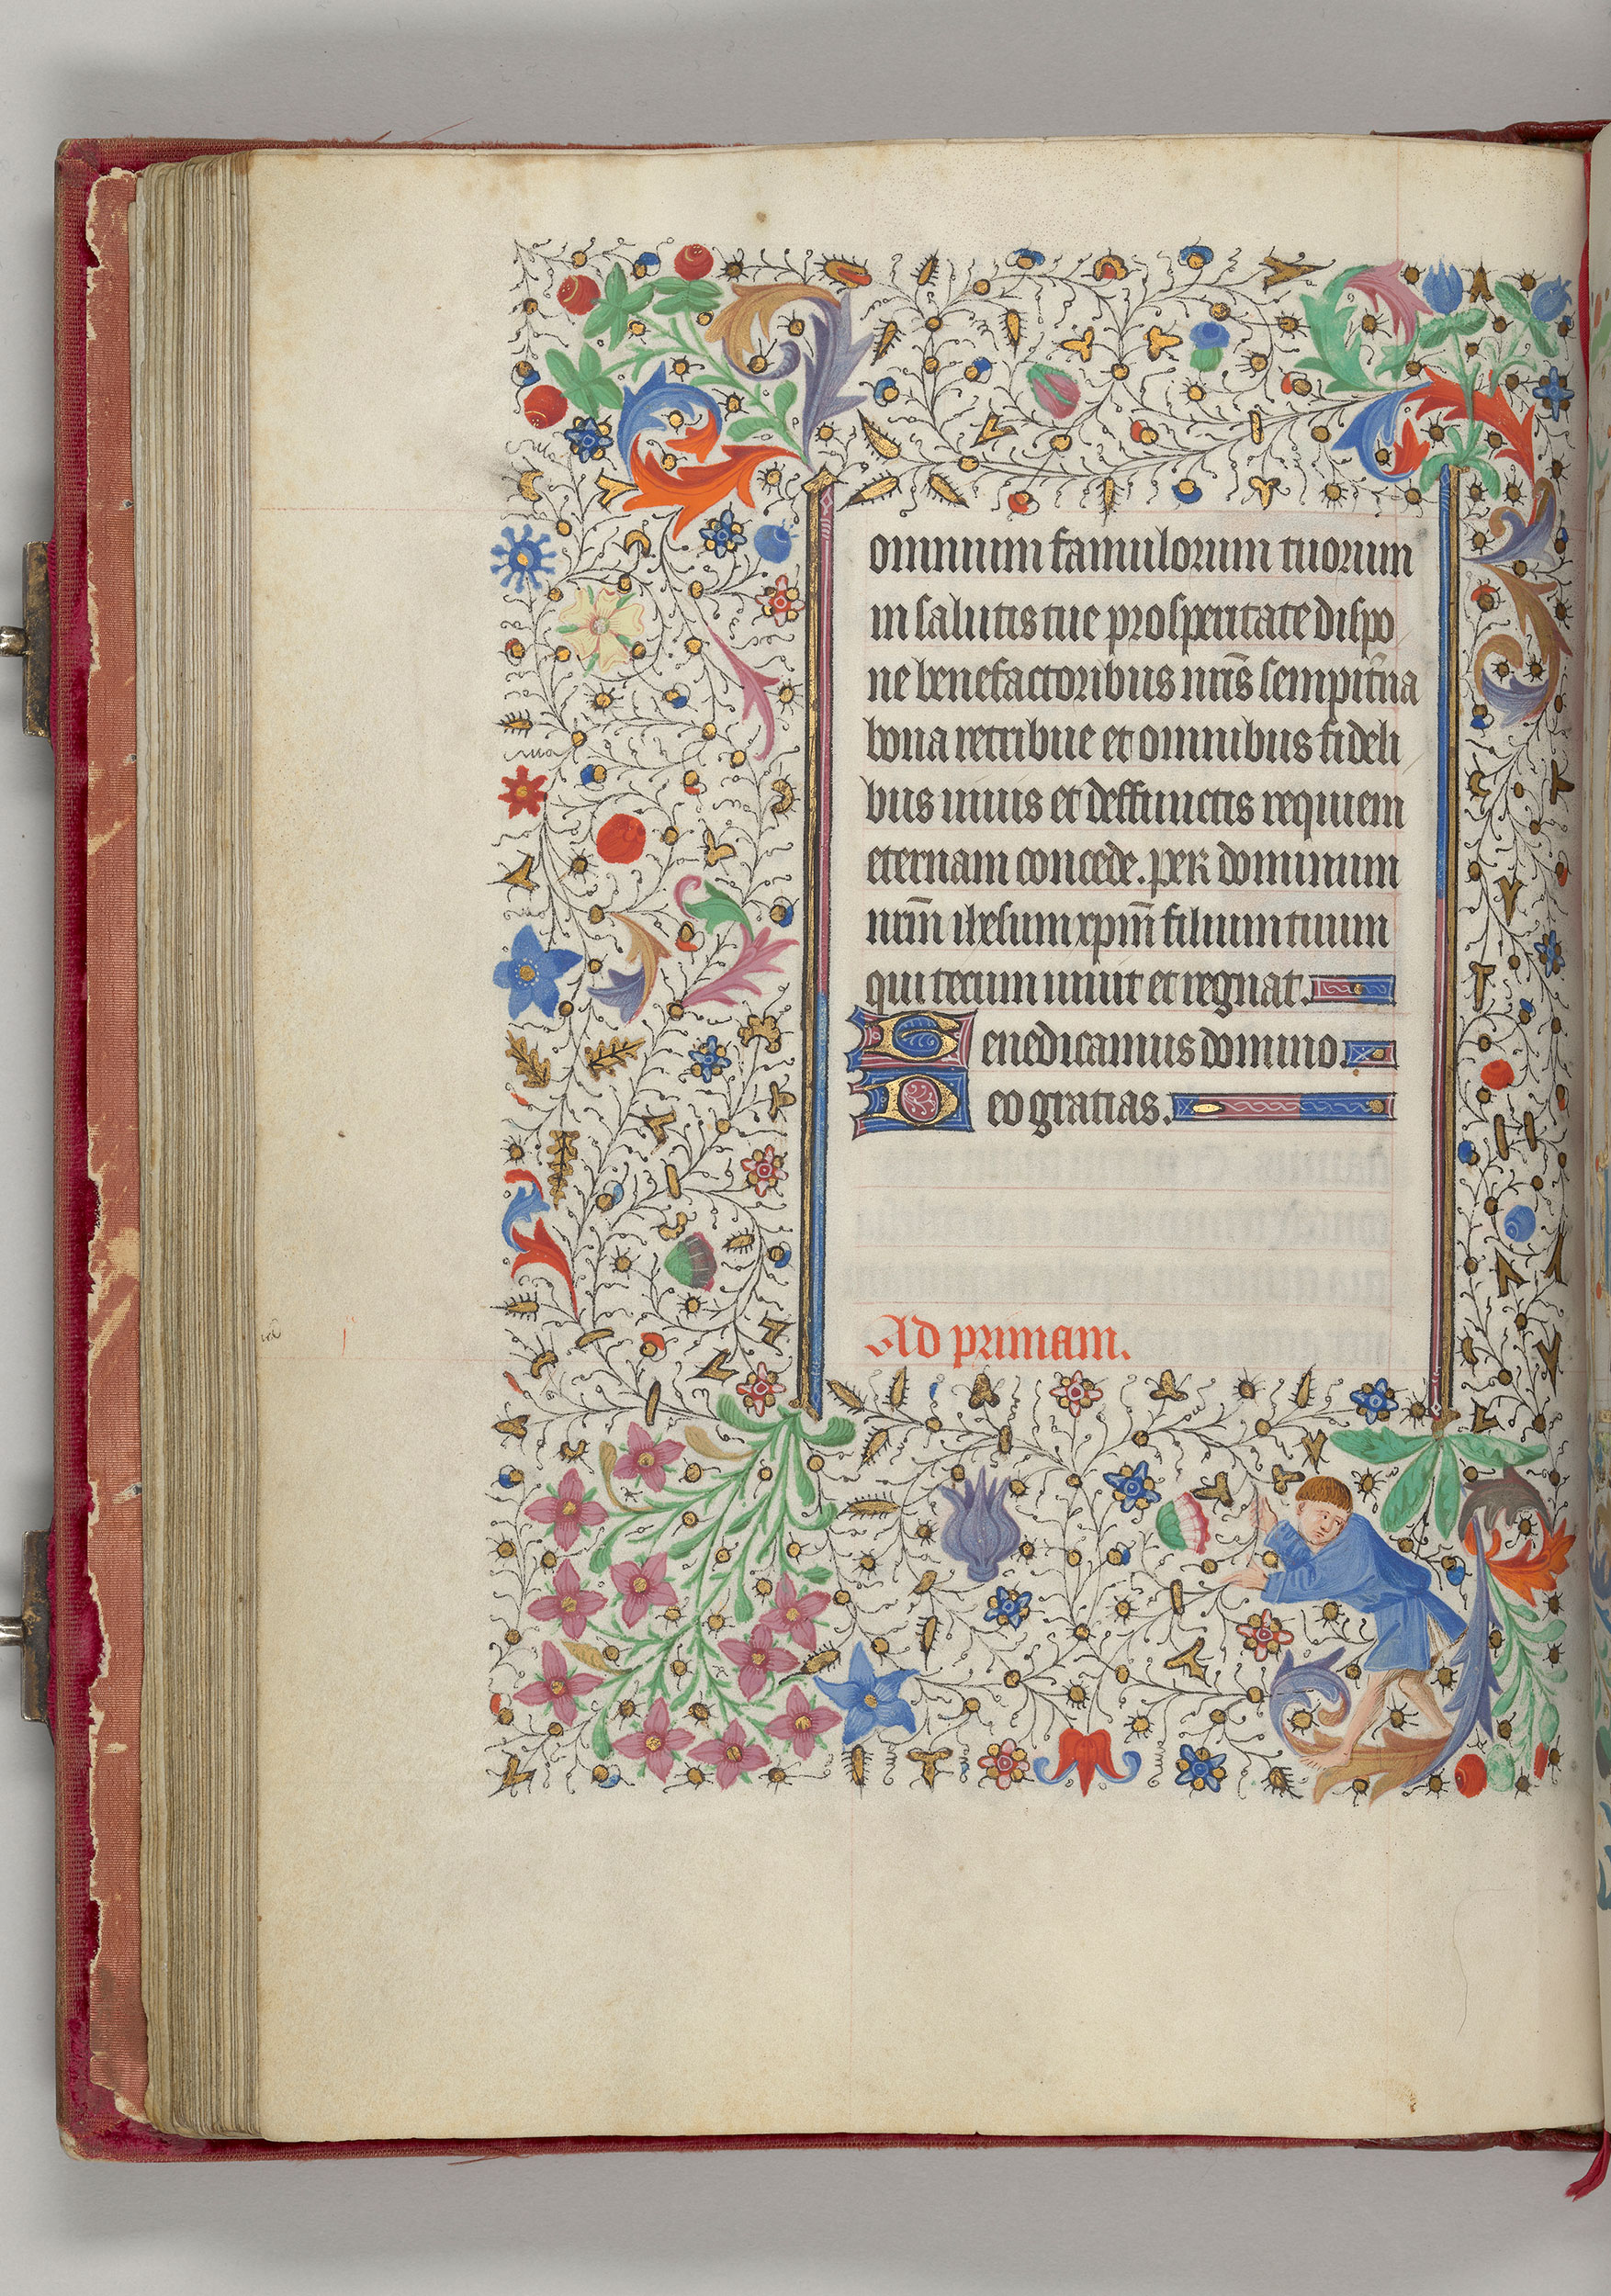 omnium famulorum tuorum
in salutis tue prosperitate dispo
ne benefactoribus nr̄is sempit̄na
bona retribue et omnibus fideli
bus uiuis et deffunctis requiem
eternam concede. per dominum
nrm̄ ihesum xpm̄ filium tuum
qui tecum uiuit et regnat.
Benedicamus domino.
Deo gratias.
Ad primam.